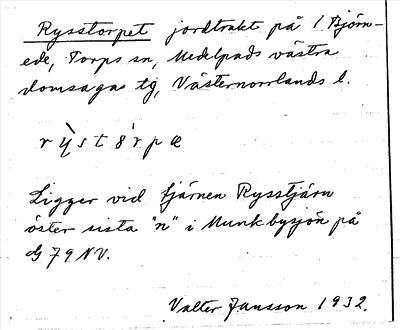 Rysstorpet jordtrakt på / Björn-
ede, Torps sn, Medelpads västra
domsagas tg, Västernorrlands l.
r y̌ s t ö́ r p æ
Ligger vid tjärnen Rysstjärn
öster sista "n" i Munkbysjön på
G 79 NV.
Valter Jansson 1932.